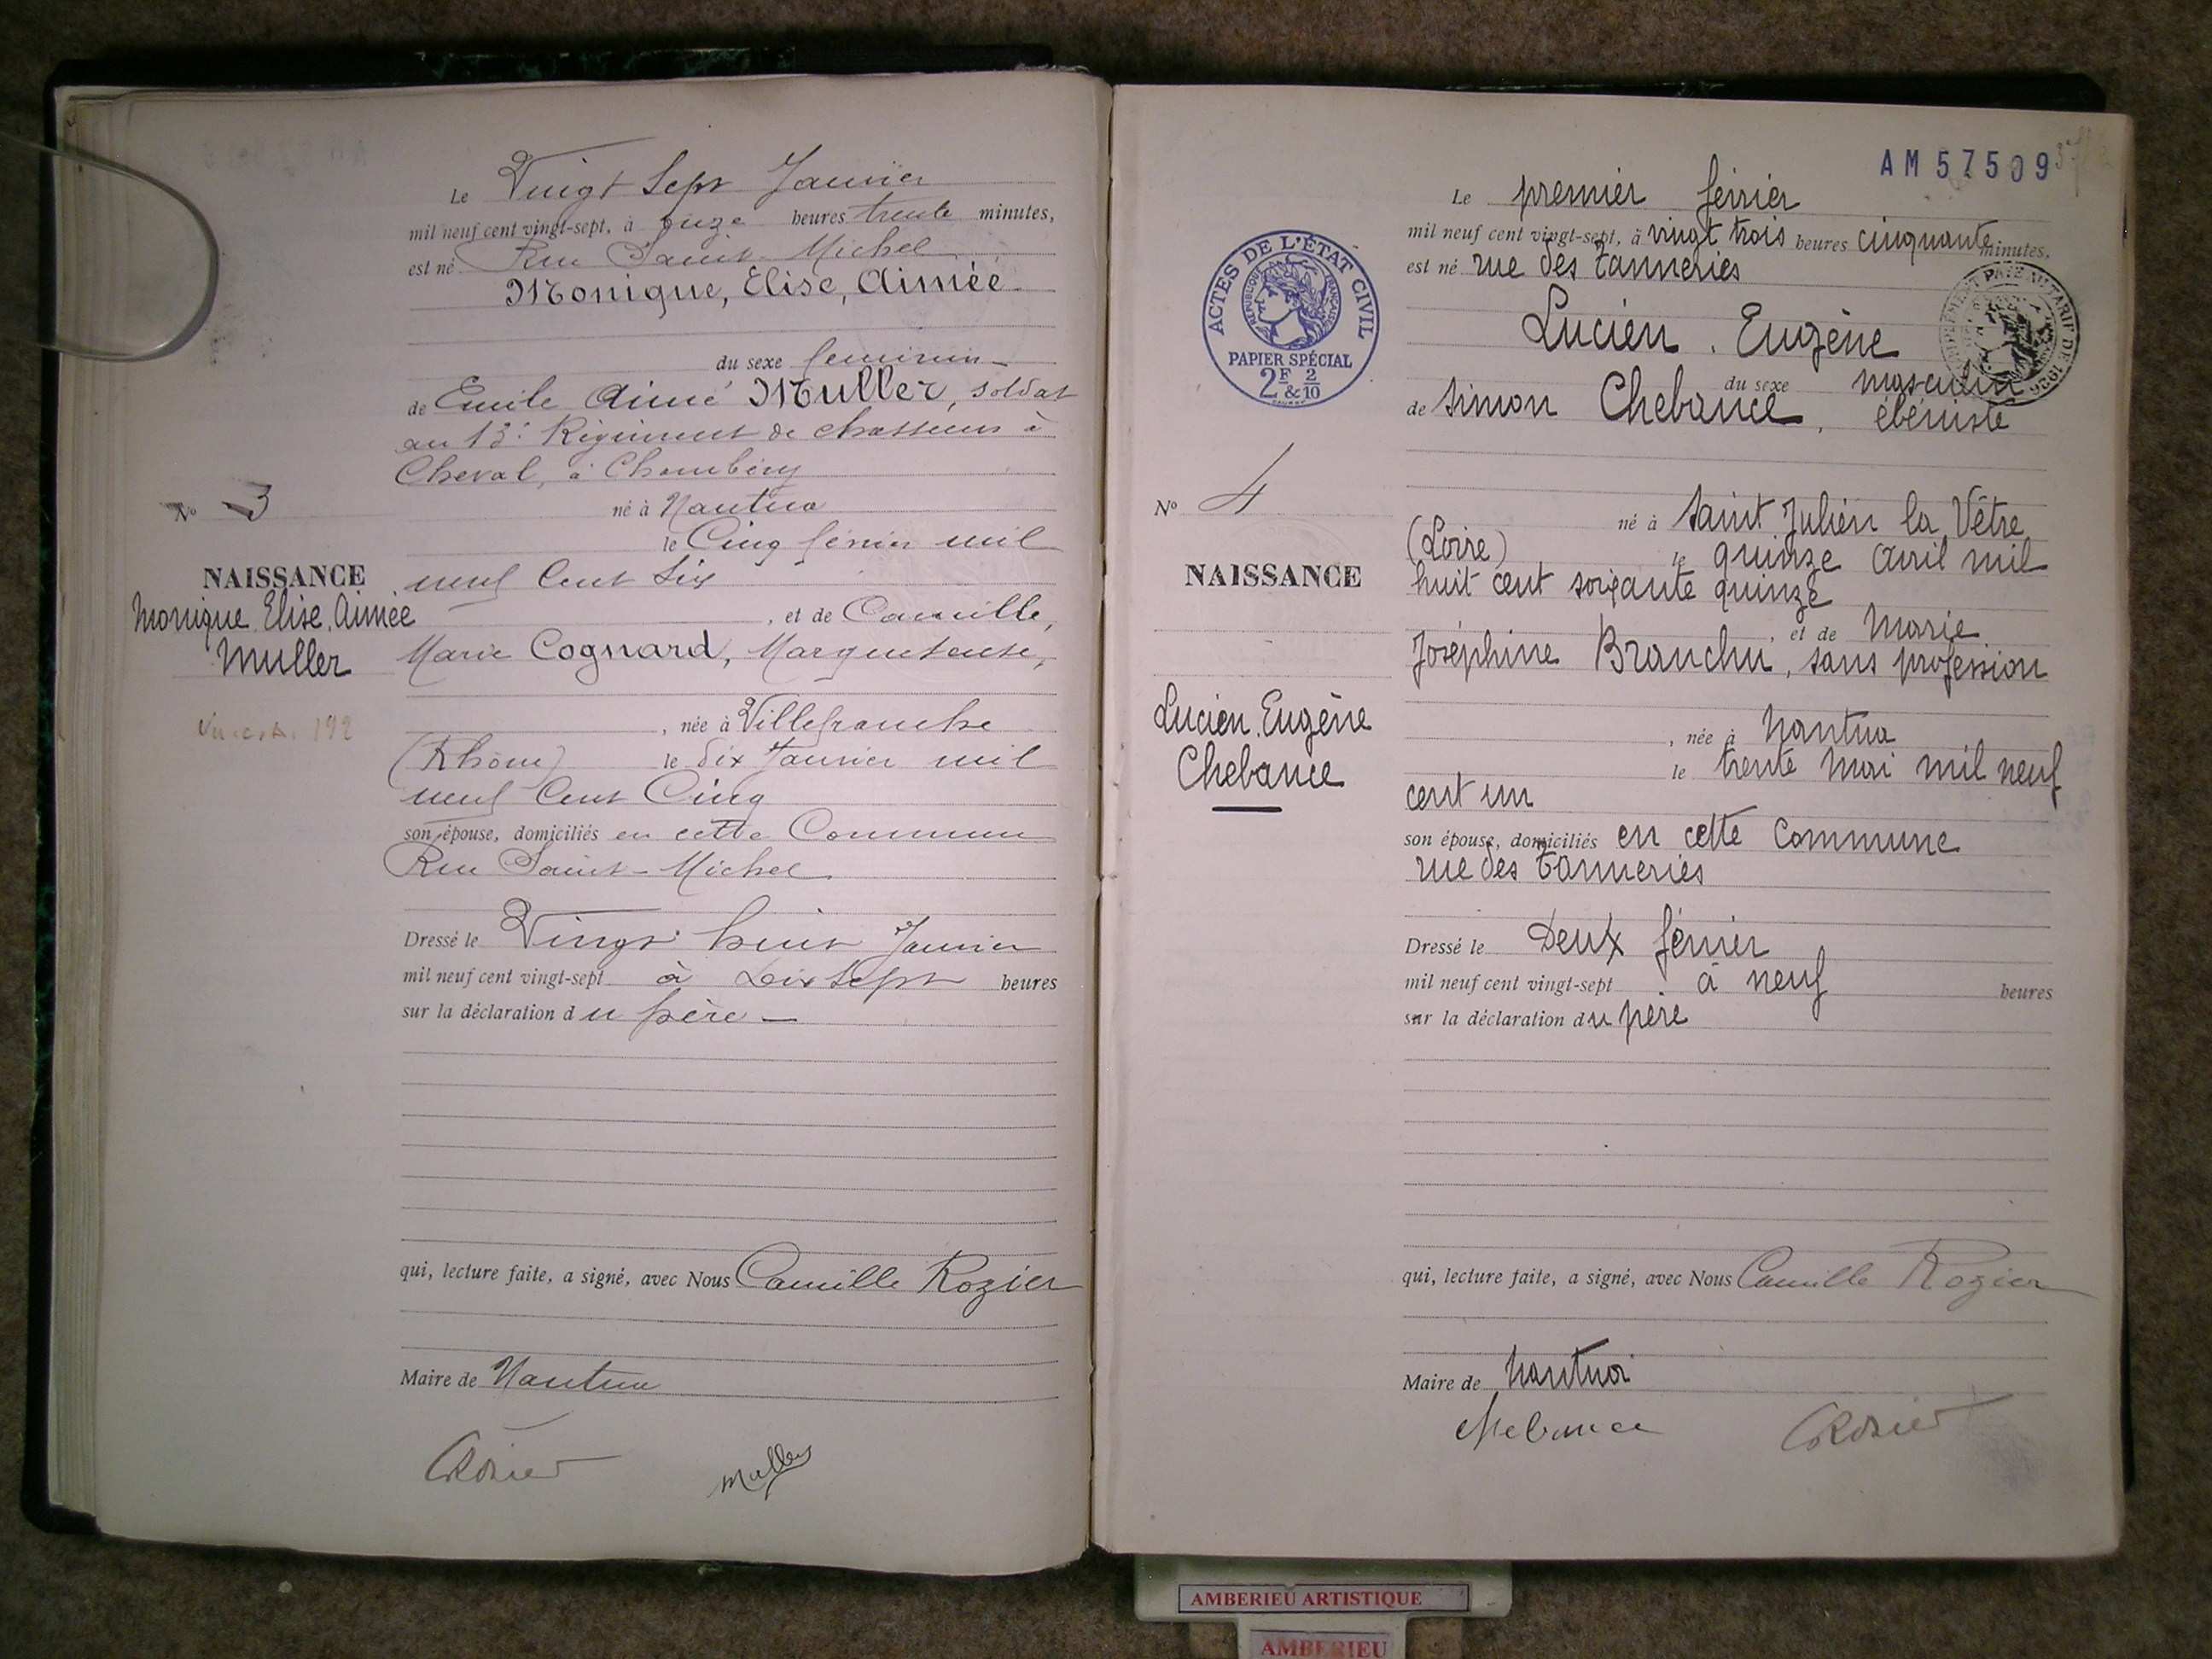 Le Vingt Sept Janvier
mil neuf cent vingt-sept, à onze heures trente minutes,
est né Rue Saint-Michel
Monique, Elise, Aimée
du sexe feminin
de Emile Aimé Muller, soldat
au 13e Régiment de chasseurs à
Cheval, à Chambéry
né à Nantua
le Cinq février mil
neuf Cent Six
, et de Camille,
Marie Cognard,
, née à Villefranche
(Rhône) le dix Janvier mil
neuf Cent Cinq
son épouse, domiciliés en cette Commune
Rue Saint-Michel
Dressé le Vingt huit Janvier
mil neuf cent vingt-sept à Dix Sept heures
sur la déclaration du père
qui, lecture faite, a signé, avec Nous Camille Rozier
Maire de Nantua
CRozier
Muller
No 3
NAISSANCE
Monique Elise. Aimée
Muller
AM 57509
Le premier février
mil neuf cent vingt-sept, à vingt trois heures cinquante minutes,
est né rue des Tanneries
Lucien. Eugène
du sexe masculin
de Simon Chebance, ébéniste
né à Saint Julien la Vêtre
(Loire) le quinze avril mil
huit cent soixante quinze
, et de Marie
Joséphine Branchu, sans profession
, née à Nantua
le trente Mai mil neuf
cent un
son épouse, domiciliés en cette commune
rue des Tanneries
Dressé le Deux février
mil neuf cent vingt-sept à neuf heures
sur la déclaration du père
qui, lecture faite, a signé, avec Nous Camille Rozier
Maire de Nantua
Chebance CRozier
ACTES DE L'ÉTAT CIVIL
RÉPUBLIQUE FRANÇAISE
PAPIER SPÉCIAL
2F & 2/10
No 4
NAISSANCE
Lucien. Eugène
Chebance
AMBERIEU ARTISTIQUE
AMBERIEU